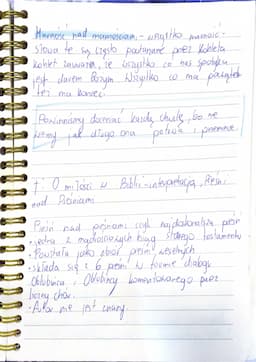 Marność nad marnościami, - wszystko marność -
słowa te są często powtarzane przez Koheleta
kohlet zauważa, że wszystko co nas spotyka
jest darem Bożym Wszystko co ma początek
też ma koniec.
Powinniśmy doceniać każdą chwilę, bo nie
wiemy jak długo ona potrwa i przeminie.
T: O miłości w Biblii - interpretacja Pieśni
nad Pieśniami
Pieśń nad pieśniami czyli najdoskonalsza pieśń
jedna z mądrościowych ksiąg starego testamentu
• Powstała jako zbiór pieśni weselnych
• składa się z 6 pieśni w formie dialogu
Oblubieńca i Oblubienicy komentowanego przez
• Autor nie jest znany.